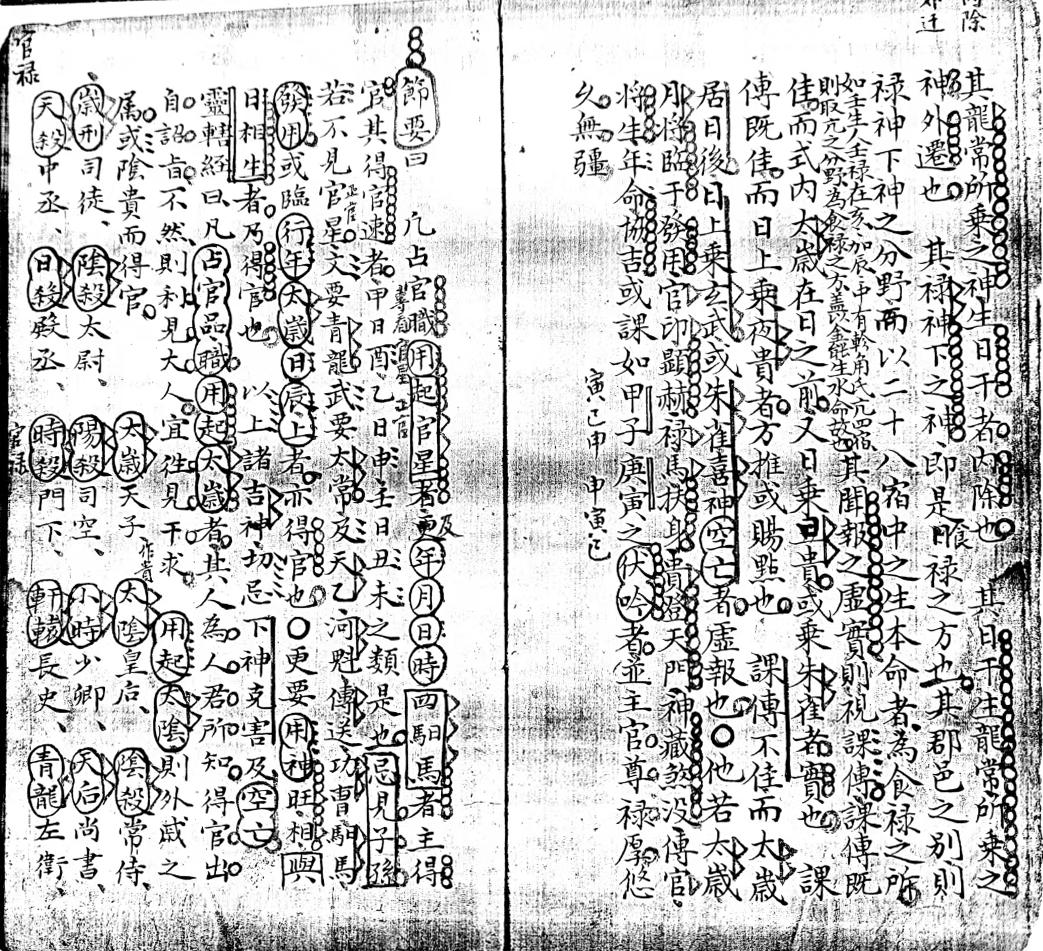 其龍常所乘之神生日干者內除也 其日干生龍常所乘之
神外遷也 其祿神下之神即是日飡祿之方也其郡邑之別則
祿神下神之分野而以二十八宿中之生本命者為食祿之所
如壬生人壬祿在亥加辰中有軫角氐亢四宿
則取亢之分野為食祿之方盖金能生水命故也其聞報之虛實則視課傳課傳既
佳而式內太歲在日之前又日乘旦貴或乘朱雀者實也 課
傳既佳而日上乘夜貴者方推或賜點也 課傳不佳而太歲
居日後日上乘玄武或朱雀喜神空亡者虛報也 他若太歲
月將臨于發用官印顯赫祿馬扶身貴登天門神藏煞没傳官
將生年命協吉或課如甲子庚寅之伏吟者並主官尊祿厚悠
久無疆
寅巳申 申寅巳
節要曰 凢占官職用起官星者更年月日時四馹馬者主得
官其得官速者甲日酉乙日申壬日丑未之類是也忌見子孫
若不見官星文要青龍武要太常及天乙河魁傳送功曹馹馬
發用或臨行年太歲日辰上者亦得官也 更要用神旺相與
日相生者乃得官也 以上諸吉神切忌下神克害及空亡
靈轄經曰凡占官品職用起太歲者其人為人君所知得官出
自詔旨不然則利見大人宜徃見干求 用起太陰則外戚之
属或陰貴而得官 太歲天子 太陰皇后 陰殺常侍
歲刑司徒 陰殺太尉 陽殺司空 小時少卿 天后尚書
天殺中丞 日殺殿丞 時殺門下 軒轅長史 青龍左衛
官祿
官祿